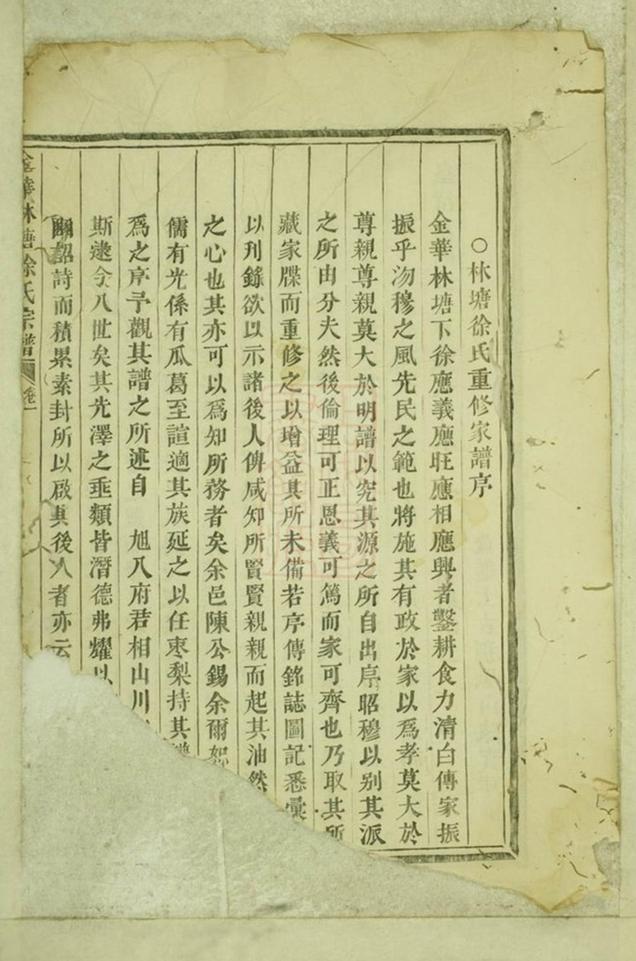 ○林塘徐氏重修家譜序
金華林塘下徐應義應旺應相應興者鑿耕食力清白傳家振
振乎沕穆之風先民之範也將施其有政於家以爲孝莫大於
尊親尊親莫大於明譜以究其源之所自出序昭穆以别其派
之所由分夫然後倫理可正恩義可篤而家可齊也乃取其所
藏家牒而重修之以增益其所未備若序傳銘誌圖記悉彙
以刋録欲以示諸後人俾咸知所賢賢親親而起其油然
之心也其亦可以爲知所務者矣余邑陳公錫余爾恕
儒有光係有瓜葛至誼適其族延之以任棗梨持其譜
爲之序予觀其譜之所述自 旭八府君相山川
斯逮今八世矣其先澤之垂類皆潛德弗耀以
詔詩而積累素封所以啟其後人者亦云
金華林塘徐氏宗譜 卷一